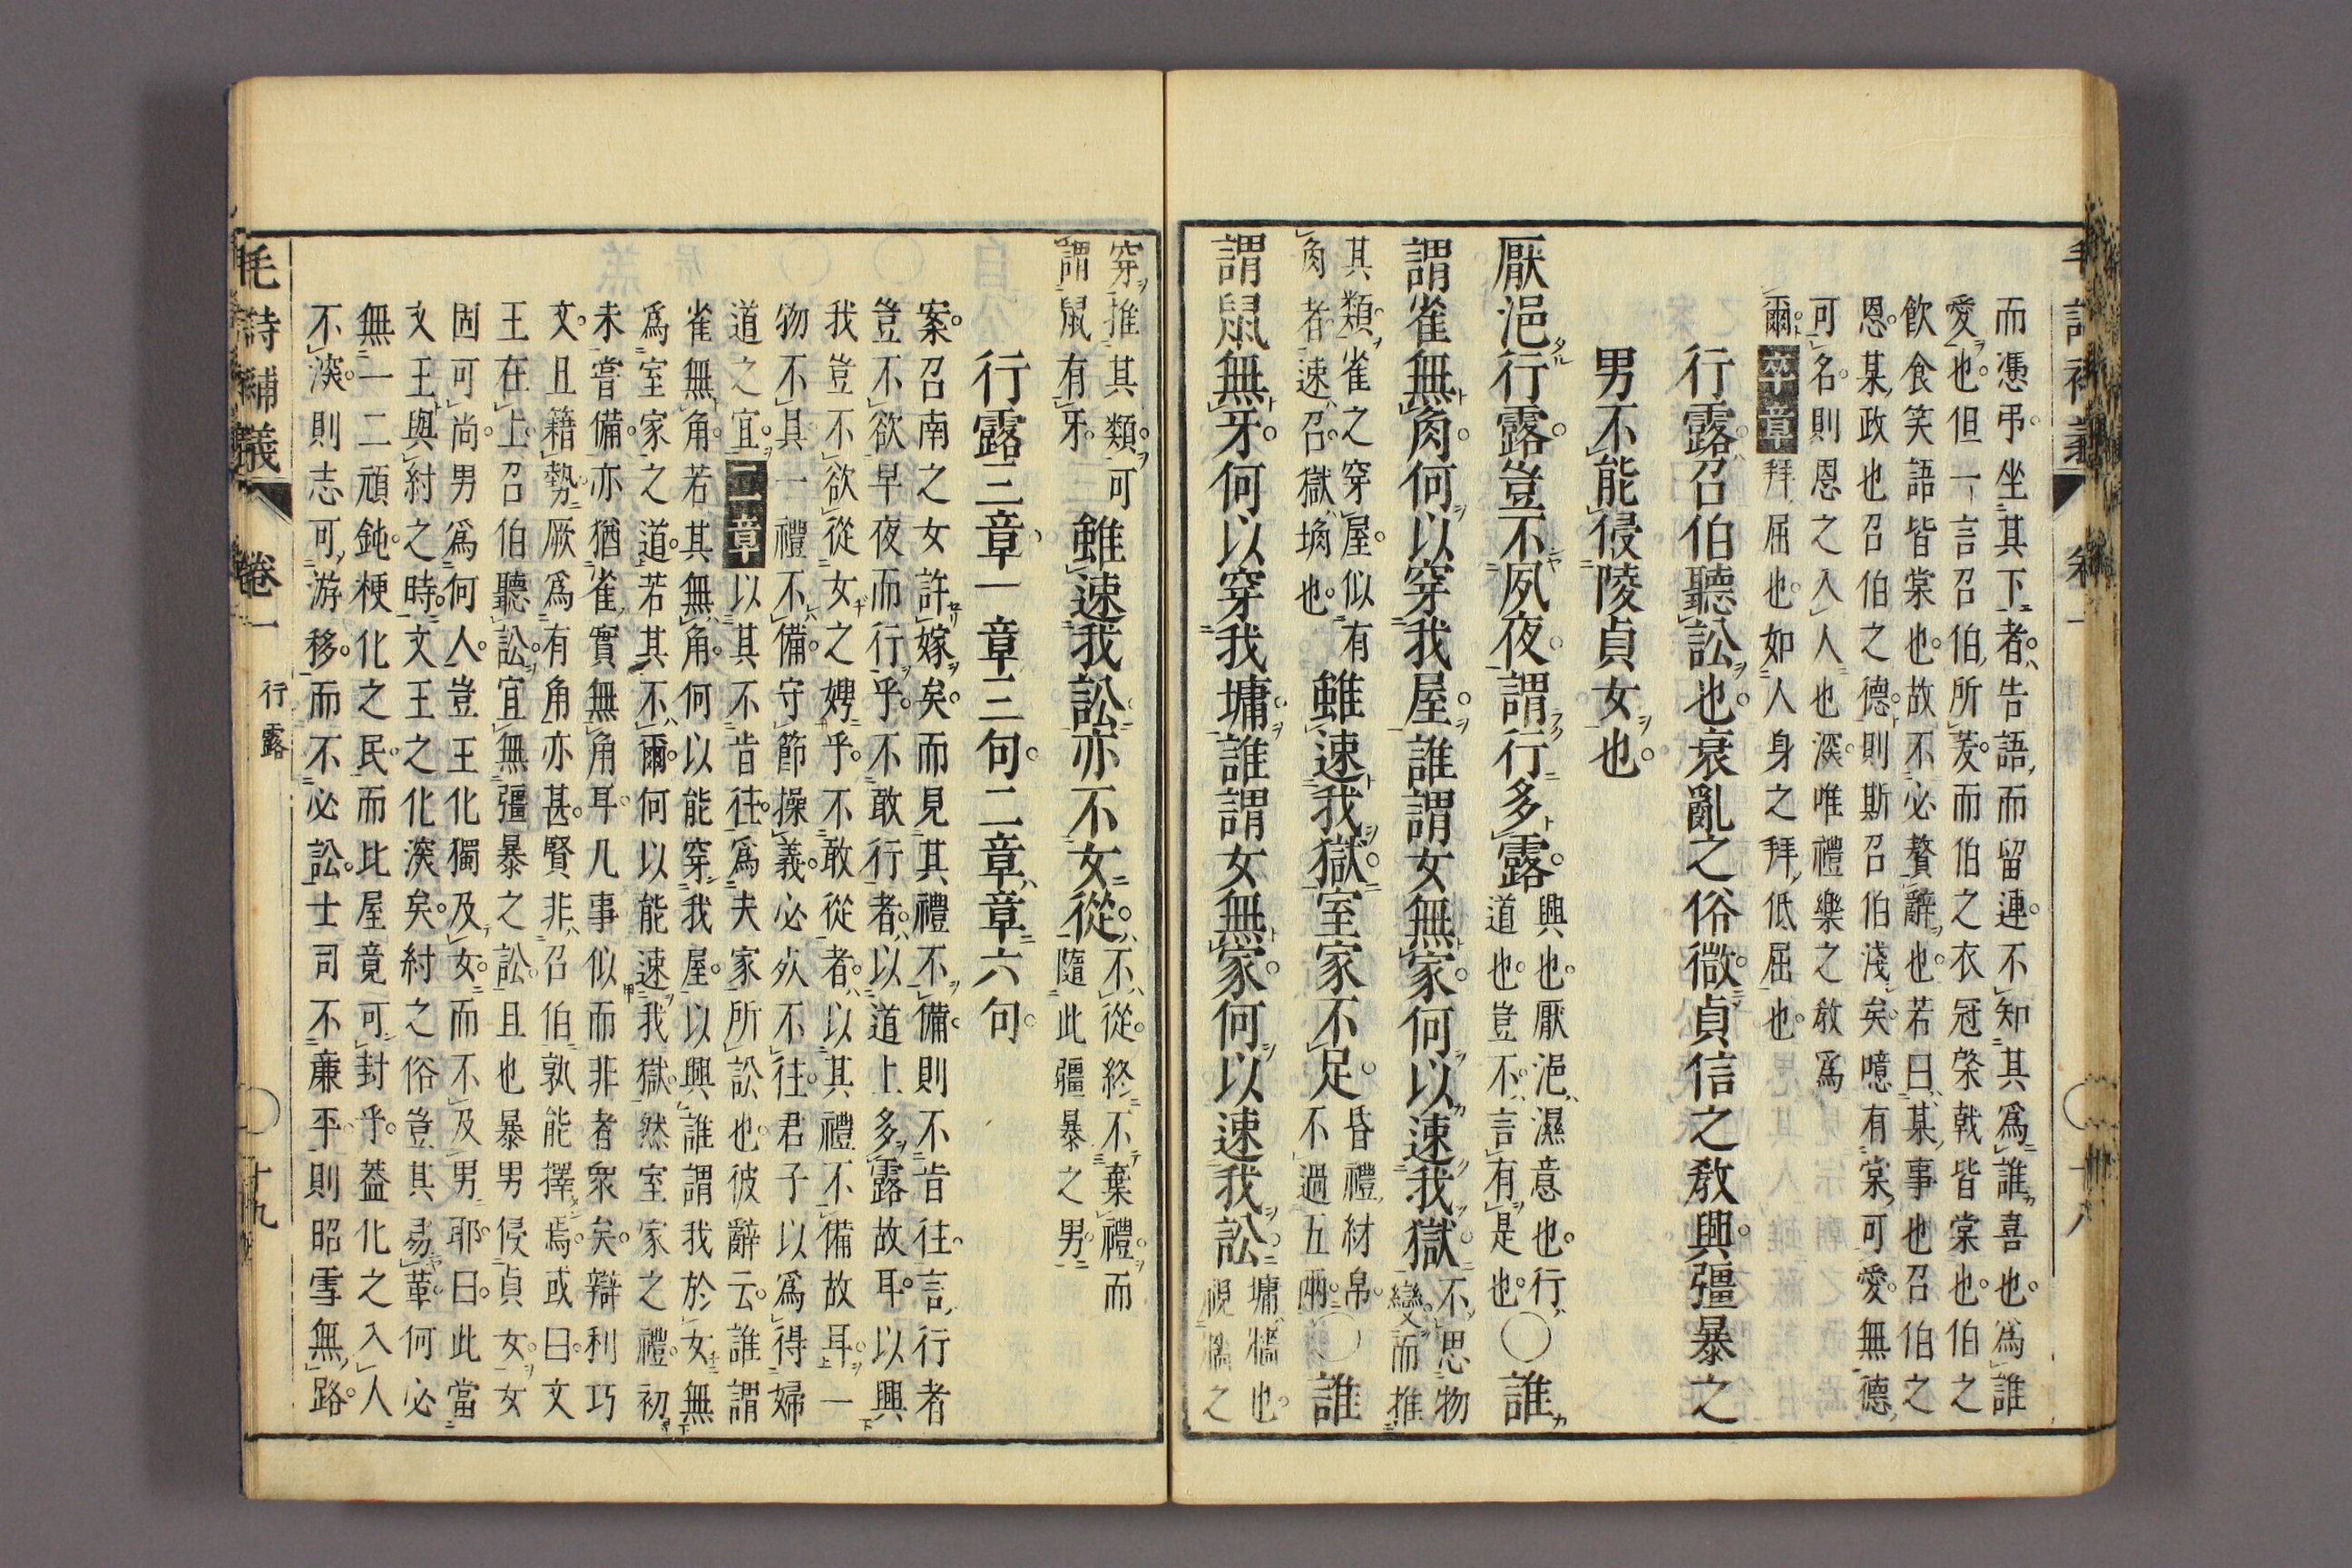 而憑弔坐其下者告語而留連不知其爲誰喜也爲誰
愛也但一言召伯所茇而伯之衣冠棨戟皆棠也伯之
飮食笑語皆棠也故不必贅辭也若曰某事也召伯之
恩某政也召伯之德則斯召伯淺矣噫有棠可愛無德
可名則恩之入人也深唯禮樂之教爲
爾卒章拜屈也如人身之拜低屈也
行露召伯聽訟也衰亂之俗微貞信之教興彊暴之
男不能侵陵貞女也
厭浥行露豈不夙夜謂行多露興也厭浥濕意也行道也豈不言有是也○誰
謂雀無角何以穿我屋誰謂女無家何以速我獄不思物變而推
其類雀之穿屋似有角者速召獄埆也雖速我獄室家不足昏禮材帛不過五兩○誰
謂鼠無牙何以穿我墉誰謂女無家何以速我訟墉牆也視牆之
穿推其類可謂鼠有牙雖速我訟亦不女從不從終不棄禮而隨此彊暴之男
行露三章一章三句二章章六句
案召南之女許嫁矣而見其禮不備則不肯往言行者
豈不欲早夜而行乎不敢行者以道上多露故耳以興
我豈不欲從女之娉乎不敢從者以其禮不備故耳一
物不具一禮不備守節操義必死不往君子以爲得婦
道之宜二章以其不肯往爲夫家所訟也彼辭云誰謂
雀無角若其無角何以能穿我屋以興誰謂我於女無
爲室家之道若其不爾何以能速我獄然室家之禮初
未嘗備亦猶雀實無角耳凡事似而非者衆矣辯利巧
文且籍勢厥爲有角亦甚賢非召伯孰能擇焉或曰文
王在上召伯聽訟宜無彊暴之訟且也暴男侵貞女女
固可尚男爲何人豈王化獨及女而不及男耶曰此當
文王與紂之時文王之化深矣紂之俗豈其易革何必
無一二頑鈍梗化之民而比屋竟可封乎蓋化之入人
不深則志可游移而不必訟士司不廉平則昭雪無路
毛詩補義 卷一 行露 十九